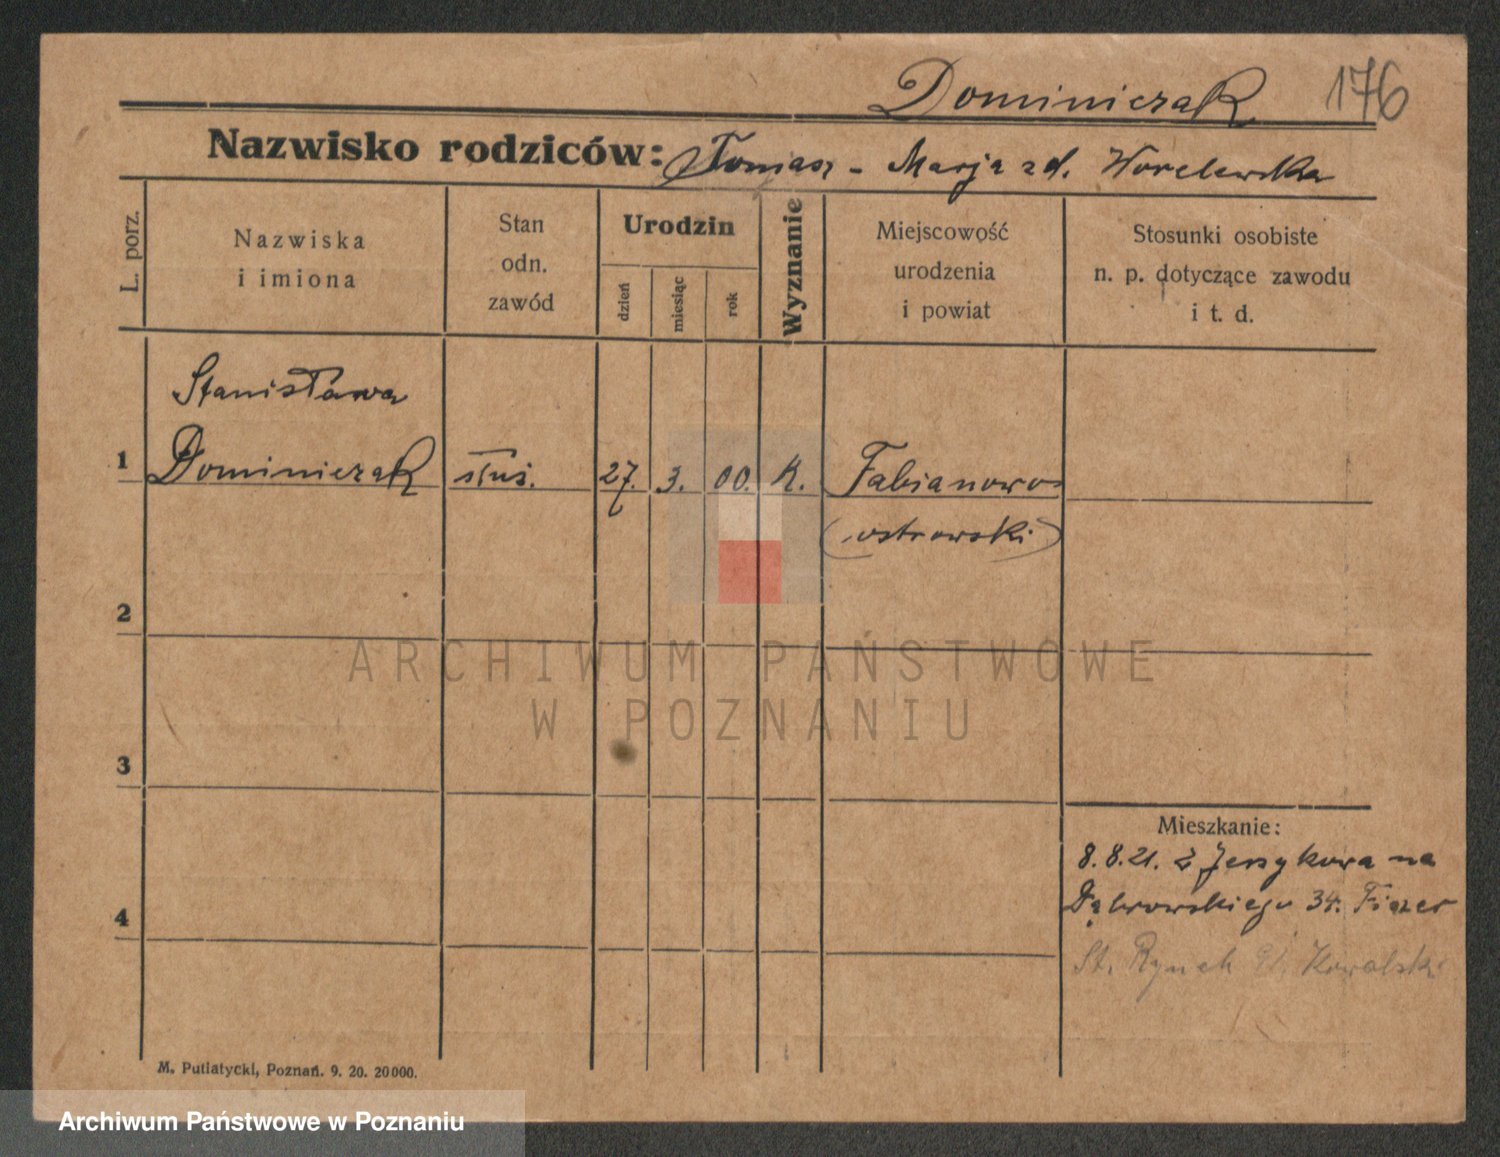 Dominiczak 176
Nazwisko rodziców: Tomasz - Marja zd. Worelewska
L. porz.
Nazwiska
i imiona
Stan
odn.
zawód
Urodzin
dzień
miesiąc
rok
Wyznanie
Miejscowość
urodzenia
i powiat
Stosunki osobiste
n. p. dotyczące zawodu
i t. d.
Stanisława
1 Dominiczak służ. 27. 3. 00. K. Fabianowo
(ostrowski)
2
ARCHIWUM PAŃSTWOWE
W POZNANIU
3
Mieszkanie:
8.8.21. z Jerzykowa na
4 Dąbrowskiego 34. Fiozer
St. Rynek Kowalski
M. Putiatycki, Poznań. 9. 20. 20000.
Archiwum Państwowe w Poznaniu